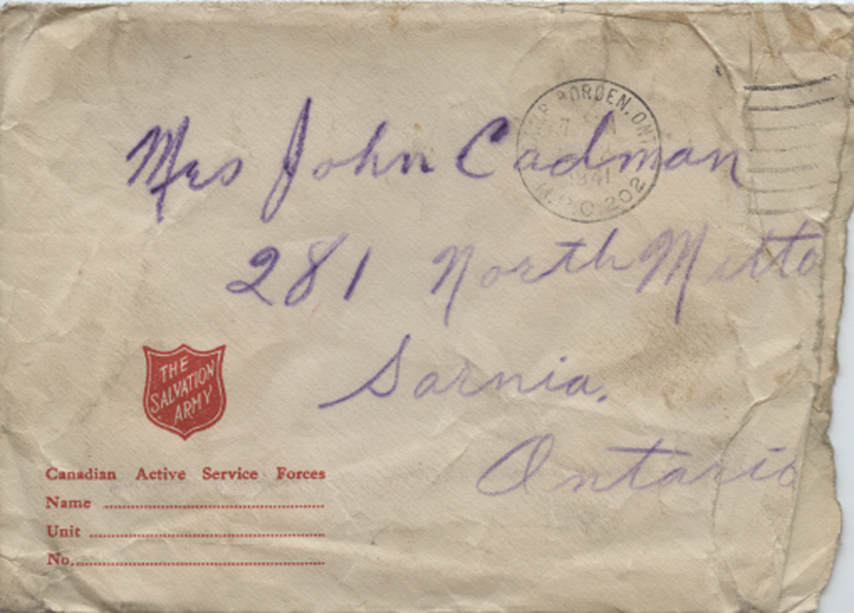 BORDEN, ONT
1941
M.P.O. 202
Mrs John Cadman
281 North Mitto
Sarnia.
Ontario
THE
SALVATION
ARMY
Canadian Active Service Forces
Name
Unit
No.